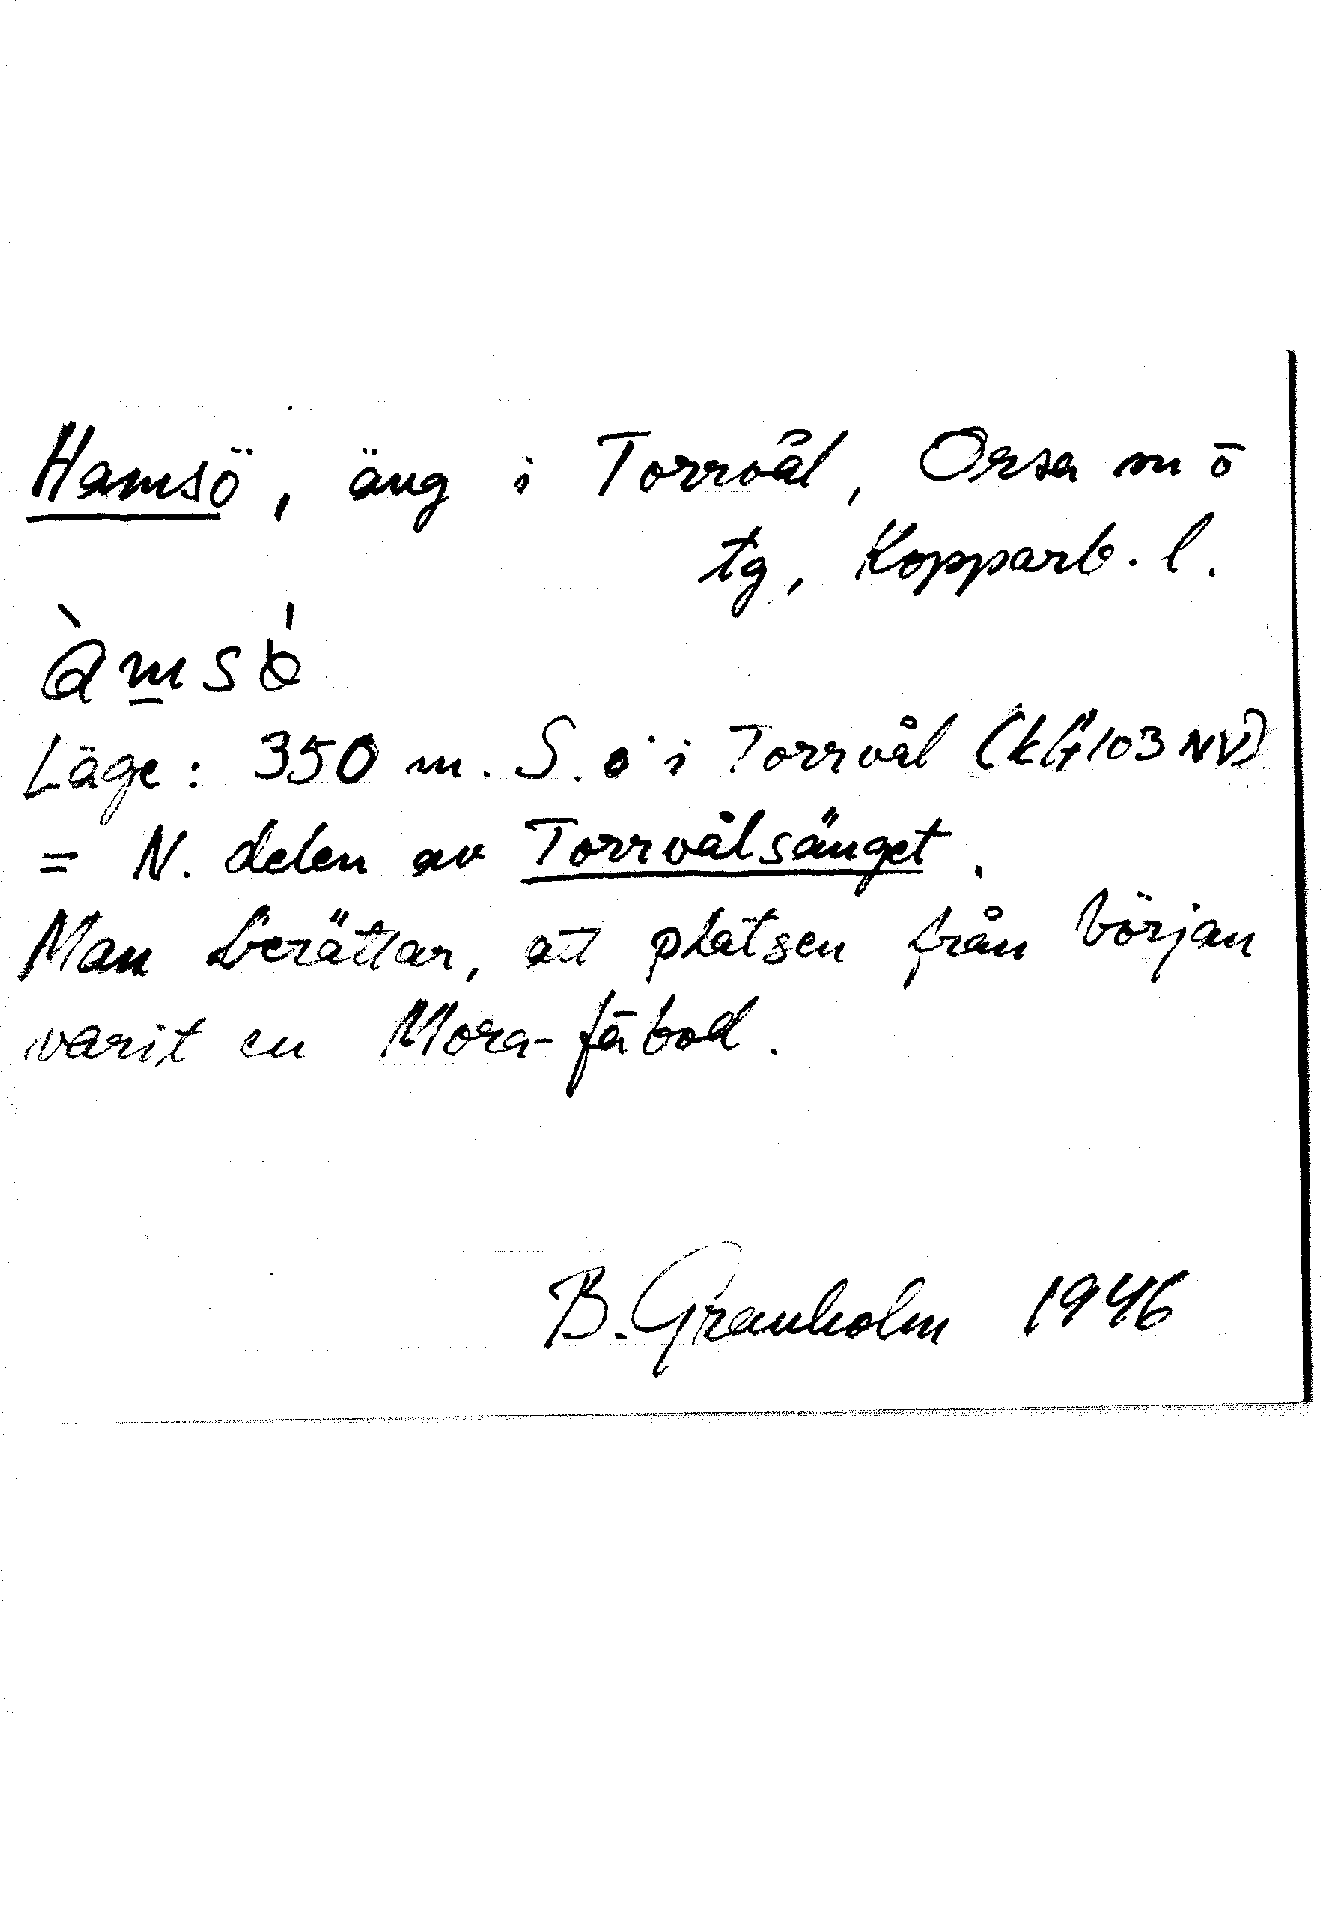 Hamsö, äng i Torrvål, Orsa m ö
tg, Kopparb. l.
Läge: 350 m. S. ö i Torrvål (kbl 103 NV)
= N. delen av Torrvålsänget.
Man berättar, att platsen från början
varit en Mora-fäbod.
B. Granholm 1946